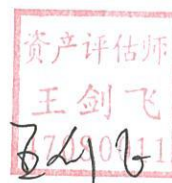 资产评估师
王剑飞
王剑飞